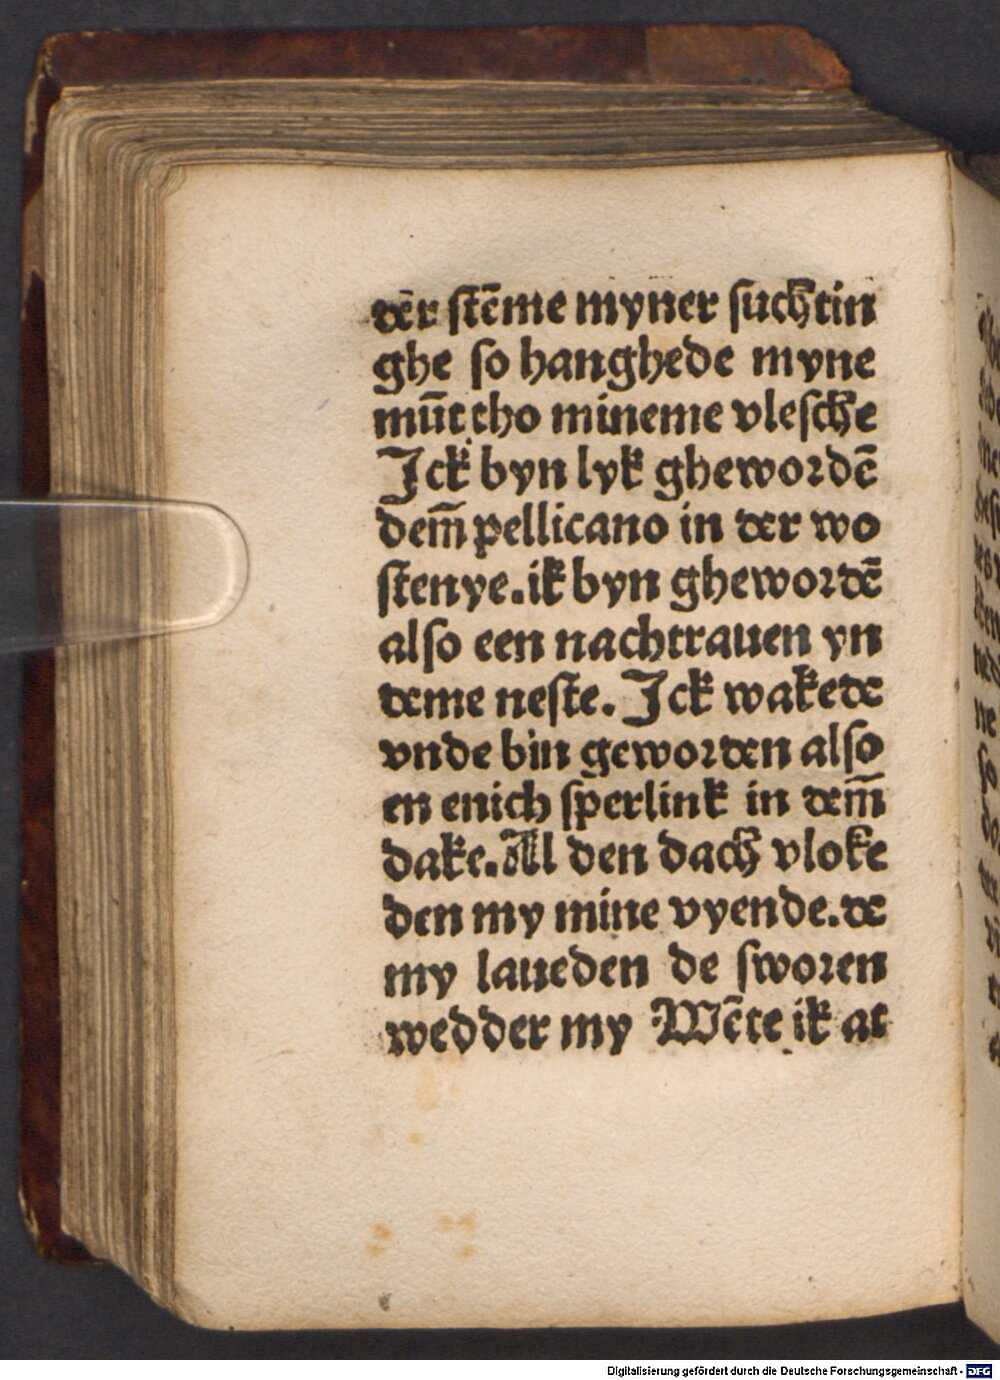 der stēme myner suchtin
ghe so hanghede myne
mūt tho mineme vlesche
Jck byn lyk ghewordē
dem̄ pellicano in der wo
stenye. ik byn ghewordē
also een nachtrauen yn
deme neste. Jck wakede
vnde bin geworden also
en enich sperlink in dem̄
dake. Al den dach vloke
den my mine vyende. de
my laueden de sworen
wedder my Wēte ik at
Digitalisierung gefördert durch die Deutsche Forschungsgemeinschaft - DFG